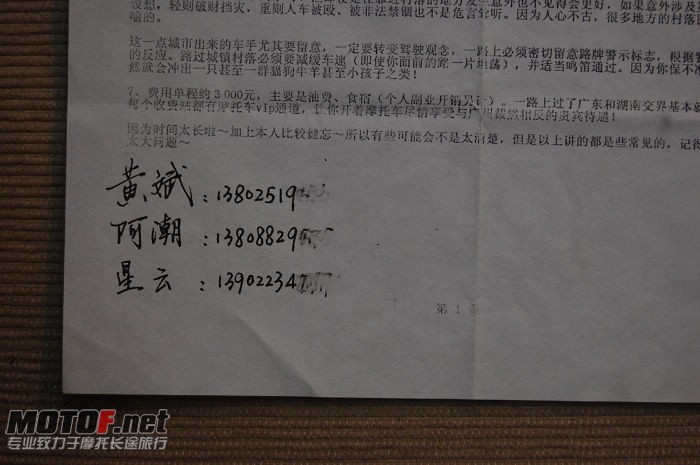 设想，轻则破财挡灾，重则人车被毁、被非法禁锢也不是危言耸听。因为人心不古，很多地方的村落
喻的。
这一点城市出来的车手尤其要留意，一定要转变驾驶观念，一路上必须密切留意路牌警示标志，根据警
的反应。路过城镇村落必须要减缓车速（即使你面前的路一片坦荡），并适当鸣笛通过。因为你保不准
然就会冲出一只甚至一群猫狗牛羊甚至小孩子之类！
7、费用单程约3000元，主要是油费、食宿（个人副业开销另计）。一路上过了广东和湖南交界基本就
每个收费站都有摩托车vip通道，让你开着摩托车尽情享受与广州截然相反的贵宾待遇！
因为时间太长啦～加上本人比较健忘～所以有些可能会不是太清楚，但是以上讲的都是些常见的，记得
太大问题～
黄斌：13802519
阿潮：13808829
星云：13902234
第 1 页
MOTOF.net
专业致力于摩托长途旅行